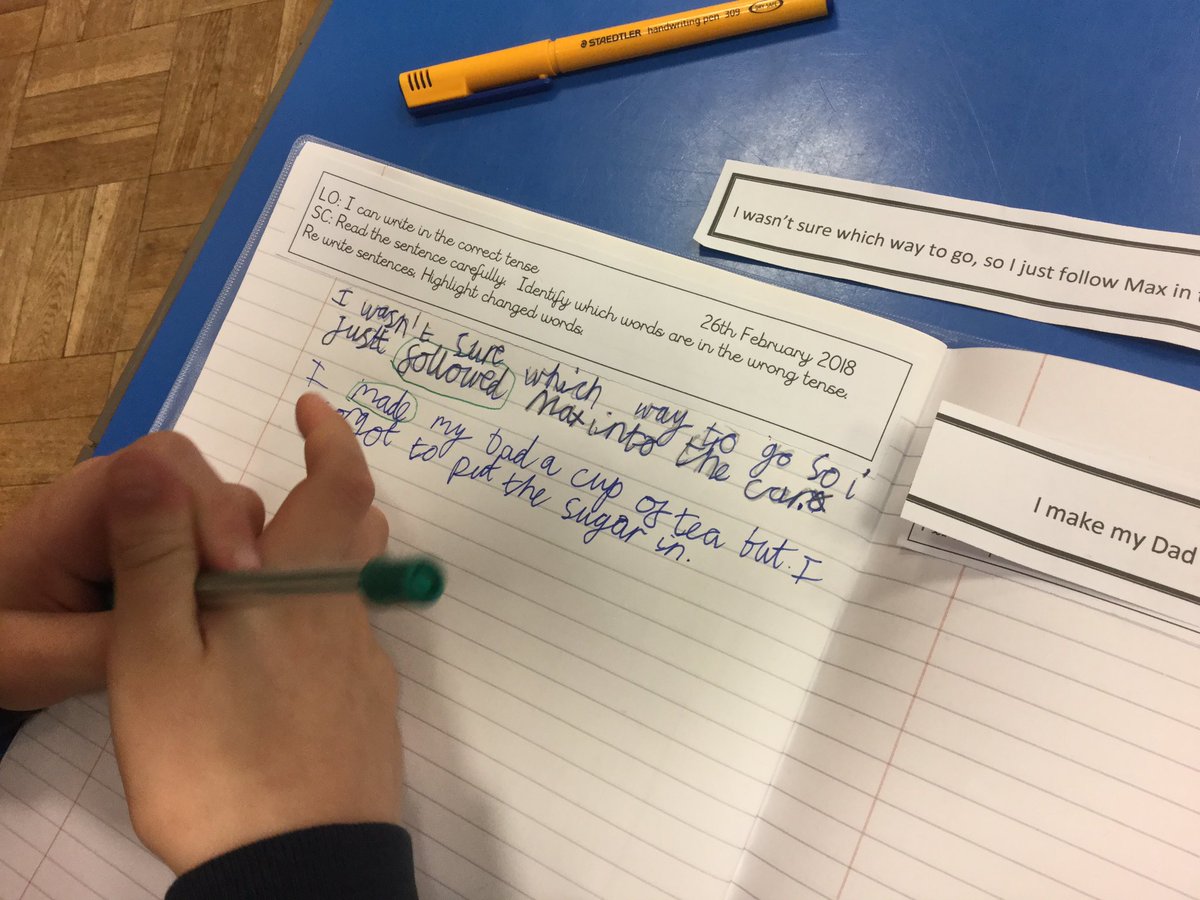 STAEDTLER handwriting pen 309
DRY SAFE
I wasn't sure which way to go, so I just follow Max in
LO: I can write in the correct tense
26th February 2018
SC: Read the sentence carefully. Identify which words are in the wrong tense.
Re write sentences. Highlight changed words.
I wasn't sure which way to go so i
just followed Max into the
I made my Dad a cup of tea but I
forgot to put the sugar in.
I make my Dad